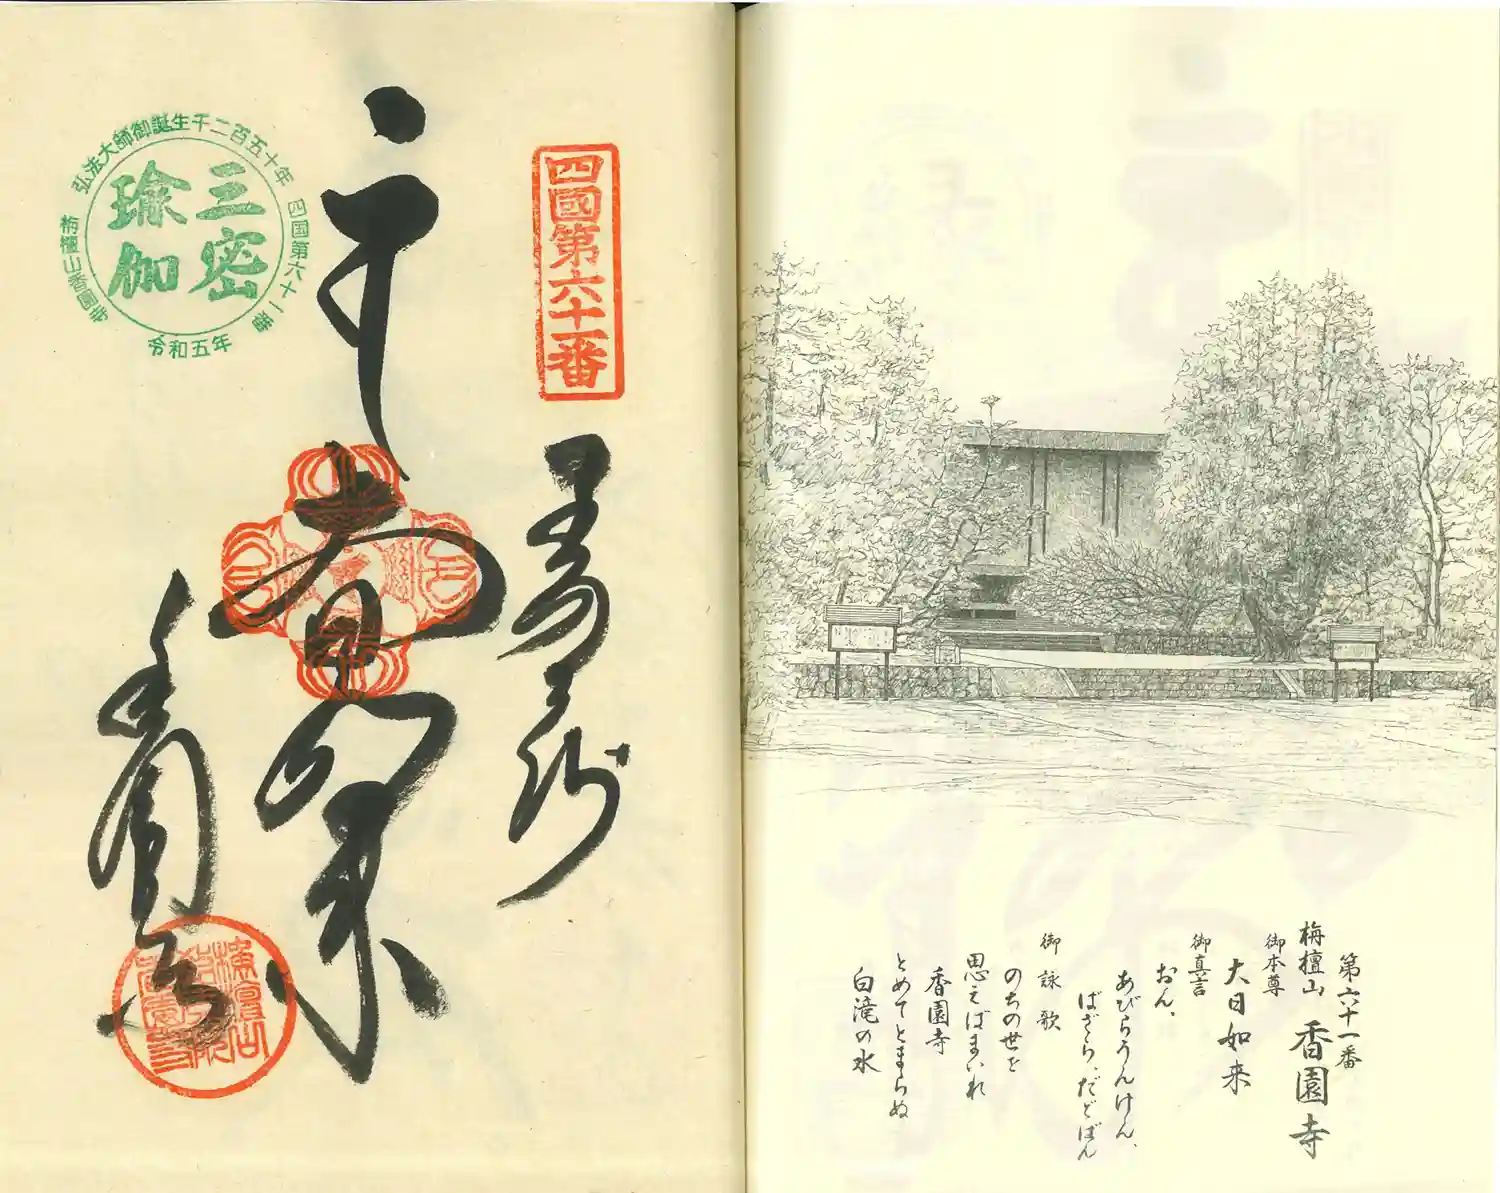 第六十一番
栴檀山 香園寺
御本尊
大日如来
御真言
おん、
あびらうんけん、
ばざら、だどばん
御詠歌
のちの世を
思えばまいれ
香園寺
とめてとまらぬ
白滝の水
四國第六十一番
奉
大日如来
香園寺
弘法大師御誕生千二百五十年
四国第六十一番
三密
瑜伽
栴檀山香園寺
令和五年